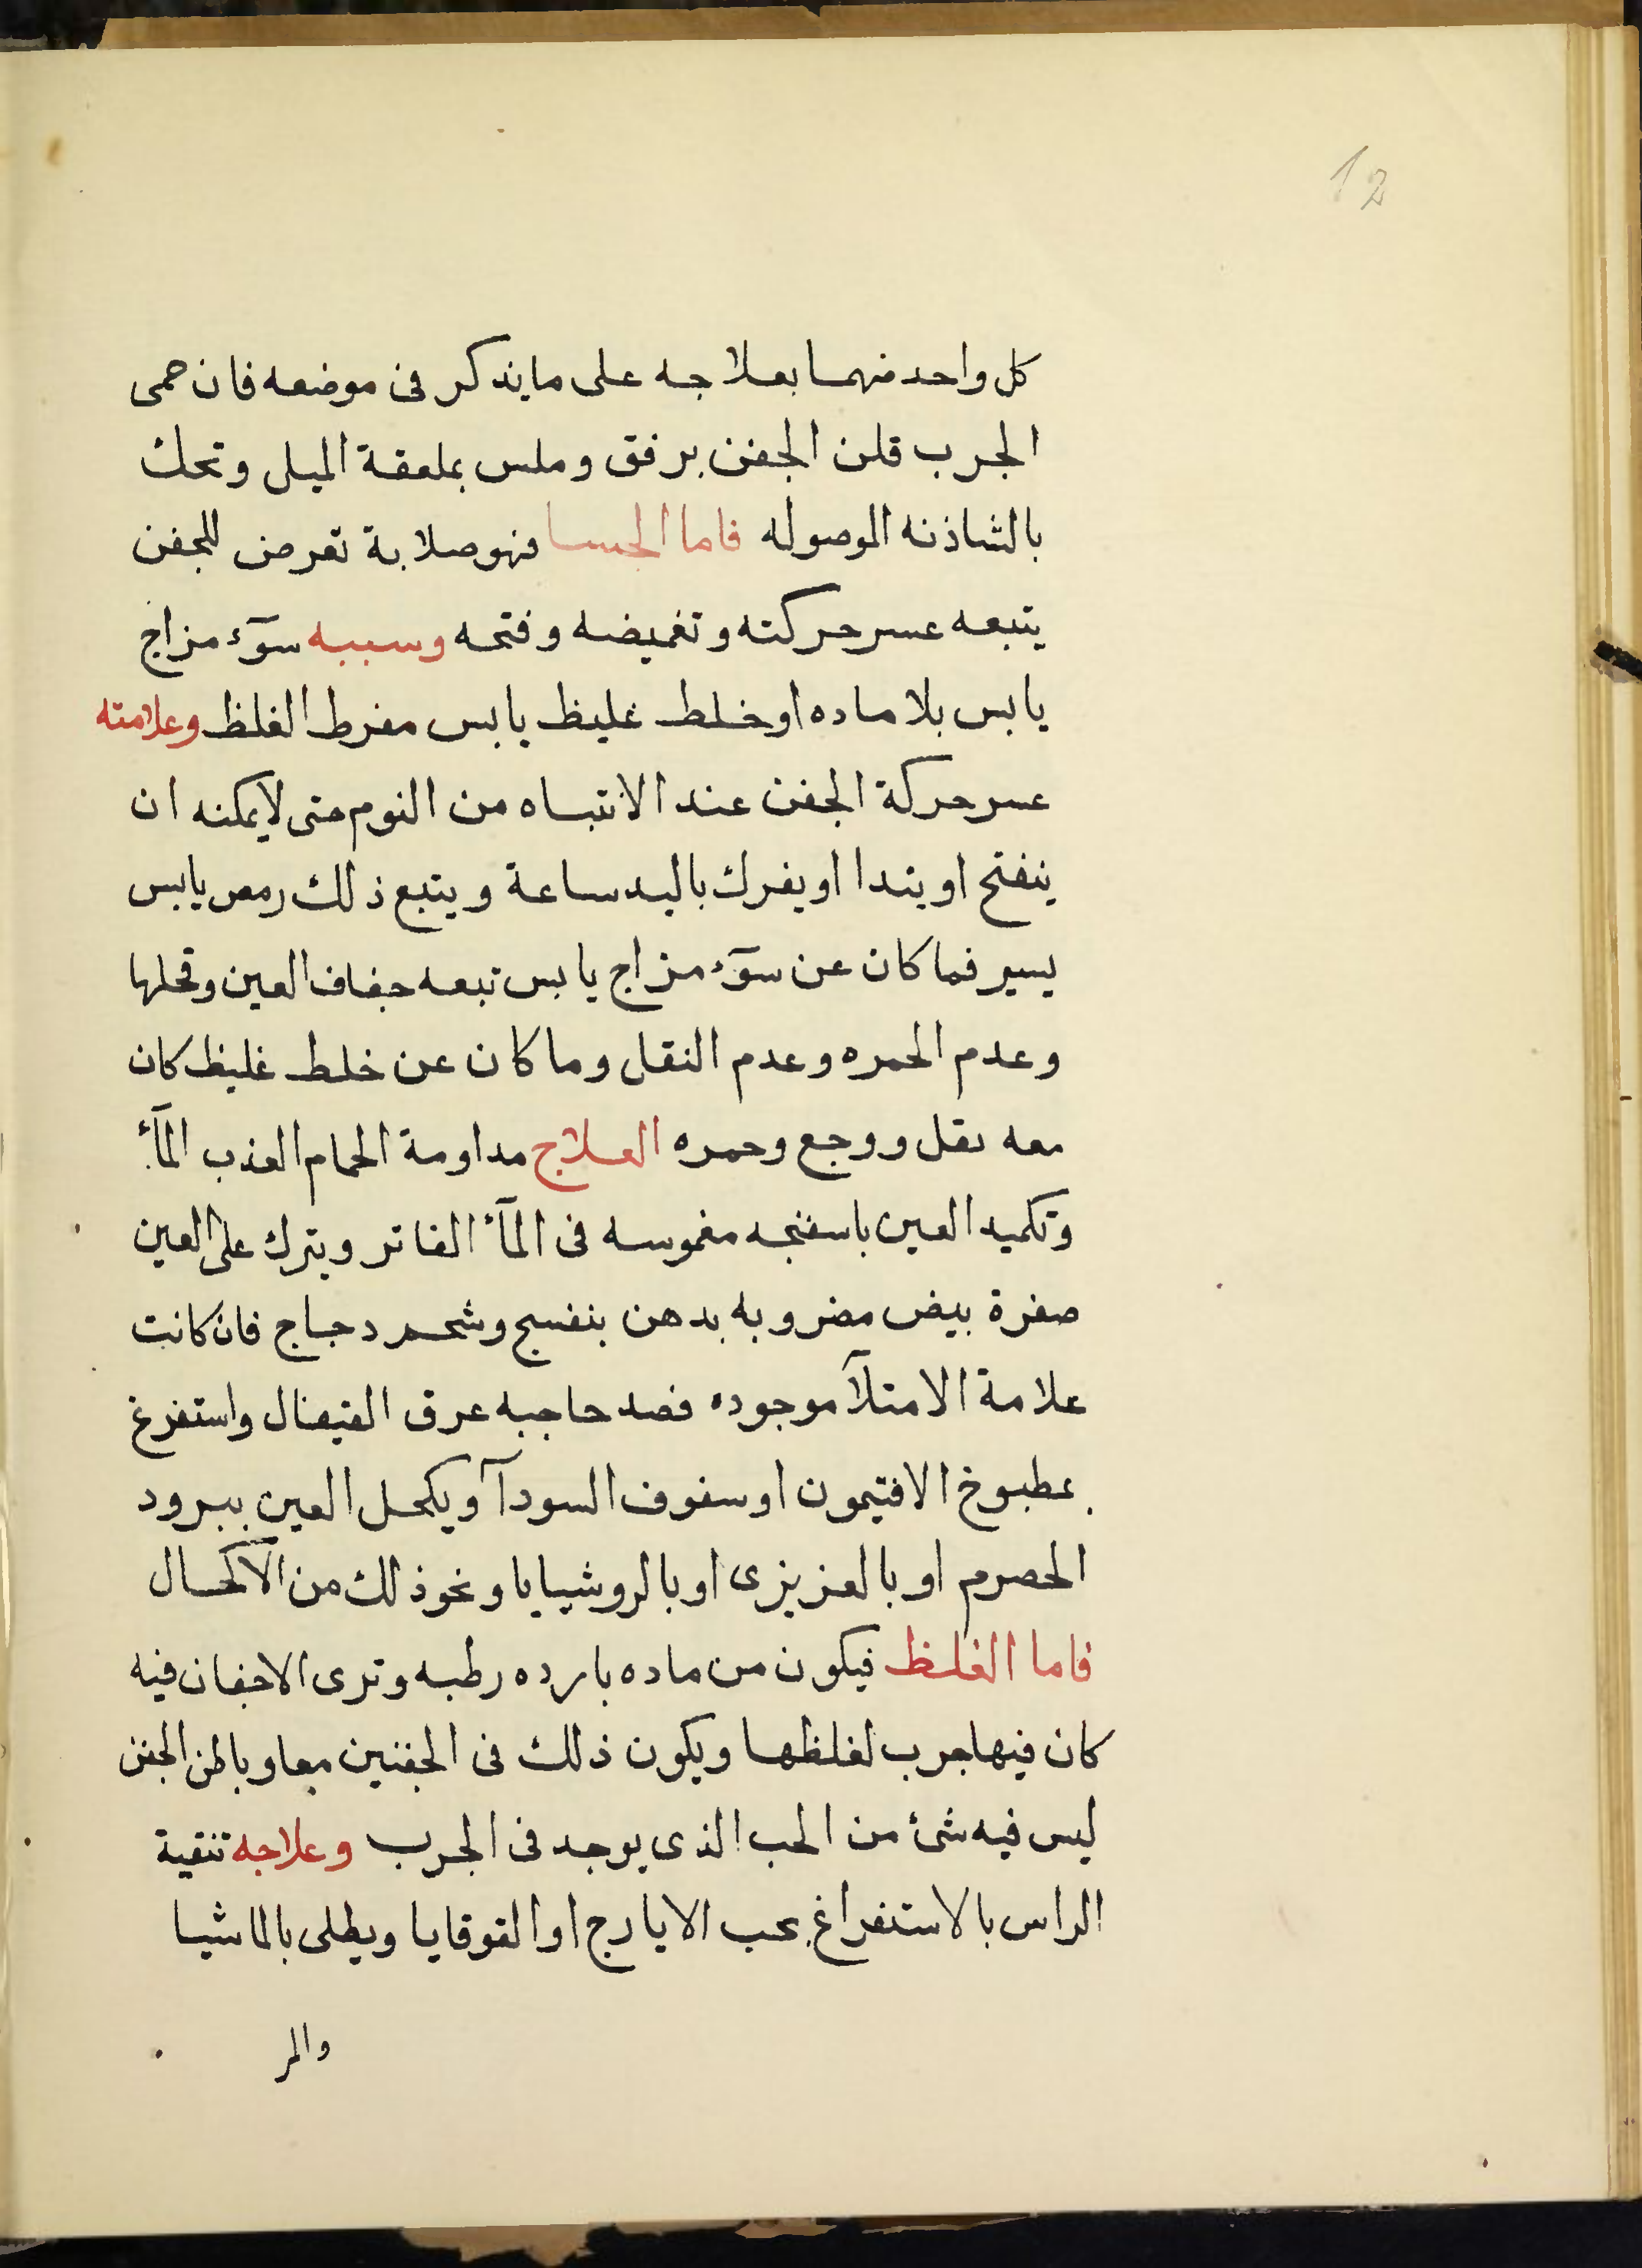 12
كل واحد منهما بعلاجه على ما يذكر فى موضعه فان حمى
الجرب قلن الجفن برفق وملس بملعقة الميل وتحك
بالشاذنه الموصوله فاما الجسا فهو صلابة تعرض للجفن
يتبعه عسر حركته وتغميضه وفتحه وسببه سوٓء مزاج
يابس بلا ماده او خلط غليظ يابس مفرط الغلظ وعلامته
عسر حركة الجفن عند الانتباه من النوم حتى لا يمكنه ان
ينفتح او يندا او يفرك باليد ساعة ويتبع ذلك رمص يابس
يسير فما كان عن سوٓء مزاج يابس تبعه جفاف العين وقحلها
وعدم الحمره وعدم النقل وما كان عن خلط غليظ كان
معه نقل ووجع وحمره العلاج مداومة الحمام العذب المآء
وتكميد العين باسفنجه مغموسه فى المآء الفاتر ويترك على العين
صفرة بيض مضروبه بدهن بنفسج وشحم دجاج فان كانت
علامة الامتلآ موجوده فصد حاجبه عرق القيفال واستفرغ
بمطبوخ الافتيمون او سفوف السودآ ويكحل العين ببرود
الحصرم او بالعزيزى او بالروشيايا ونحو ذلك من الاكحال
فاما الغلظ فيكون من ماده بارده رطبه وترى الاجفان فيه
كان فيها جرب لغلظها ويكون ذلك فى الجفنين معا وباطن الجفن
ليس فيه شئ من الحب الذى يوجد فى الجرب وعلاجه تنقية
الراس بالاستفراغ بحب الايارج او القوقايا ويطلى بالماشيا
والمر